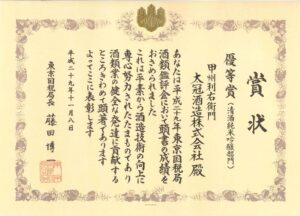 賞状
優等賞(清酒純米吟醸部門)
甲州利右衛門
大冠酒造株式会社 殿
あなたは平成二十九年東京国税局
酒類鑑評会において頭書の成績を
おさめられました
これは平素から酒造技術の向上に
専心努力されたたまものであり
酒類業の健全な発達に貢献する
ところきわめて顕著であります
よってここに表彰します
平成二十九年十一月二日
東京国税局長 藤田博一